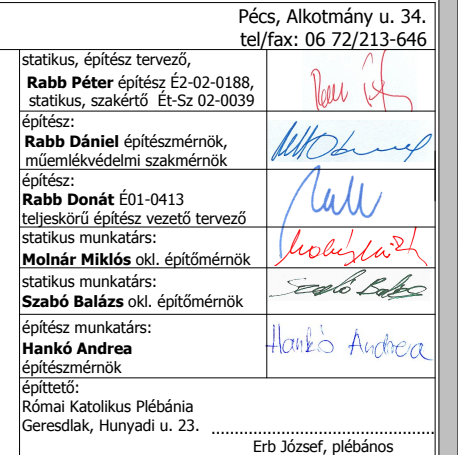 Pécs, Alkotmány u. 34.
tel/fax: 06 72/213-646
statikus, építész tervező,
Rabb Péter építész É2-02-0188,
statikus, szakértő Ét-Sz 02-0039
építész:
Rabb Dániel építészmérnök,
műemlékvédelmi szakmérnök
építész:
Rabb Donát É01-0413
teljeskörű építész vezető tervező
statikus munkatárs:
Molnár Miklós okl. építőmérnök
statikus munkatárs:
Szabó Balázs okl. építőmérnök
Szabó Balázs
építész munkatárs:
Hankó Andrea
építészmérnök
Hankó Andrea
építtető:
Római Katolikus Plébánia
Geresdlak, Hunyadi u. 23.
Erb József, plébános